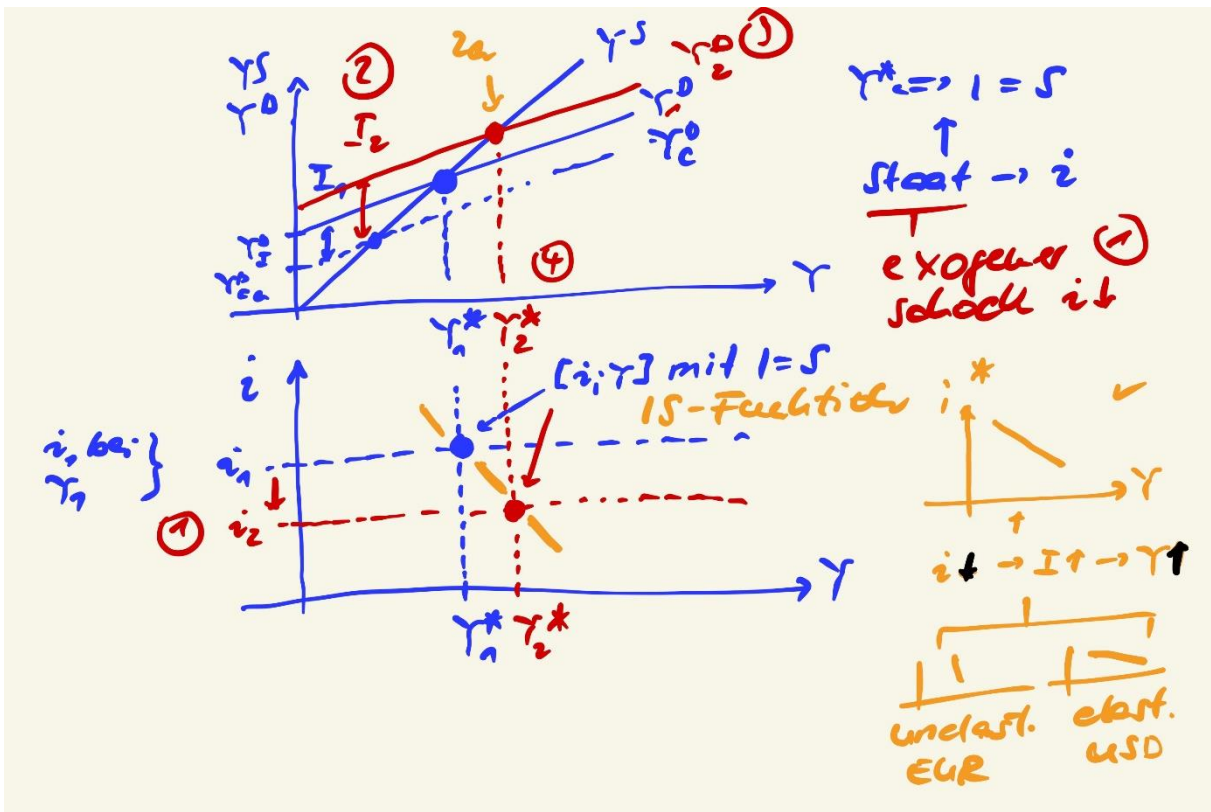 Y^S
Y^D
②
I_2
2a
Y^S
Y_2^D ③
Y_1^D
Y_C^D
I_1
Y_I^D
Y_ca^D
④
Y
Y_1^* Y_2^*
Y^* <=> I = S
Staat -> i
exogener ①
schock i↓
i
[i; Y] mit I = S
IS-Funktion
i_1 bei
Y_1
i_1
① i_2
Y
Y_1^* Y_2^*
i *
Y
i↓ -> I↑ -> Y↑
unelast.
EUR
elast.
USD